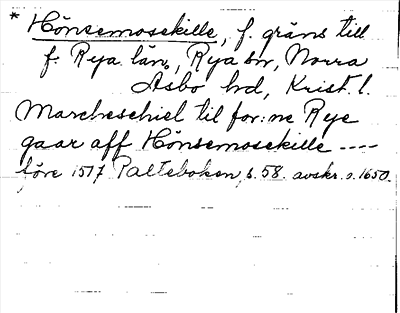 * Hönsemosekille, f. gräns till
f. Rya län, Rya sn, Norra
Åsbo hd, Krist. l.
Marcheschiel til for:ne Rye
gaar aff Hönsemosekille ----
före 1517 Palteboken, s. 58. avskr. o. 1650.